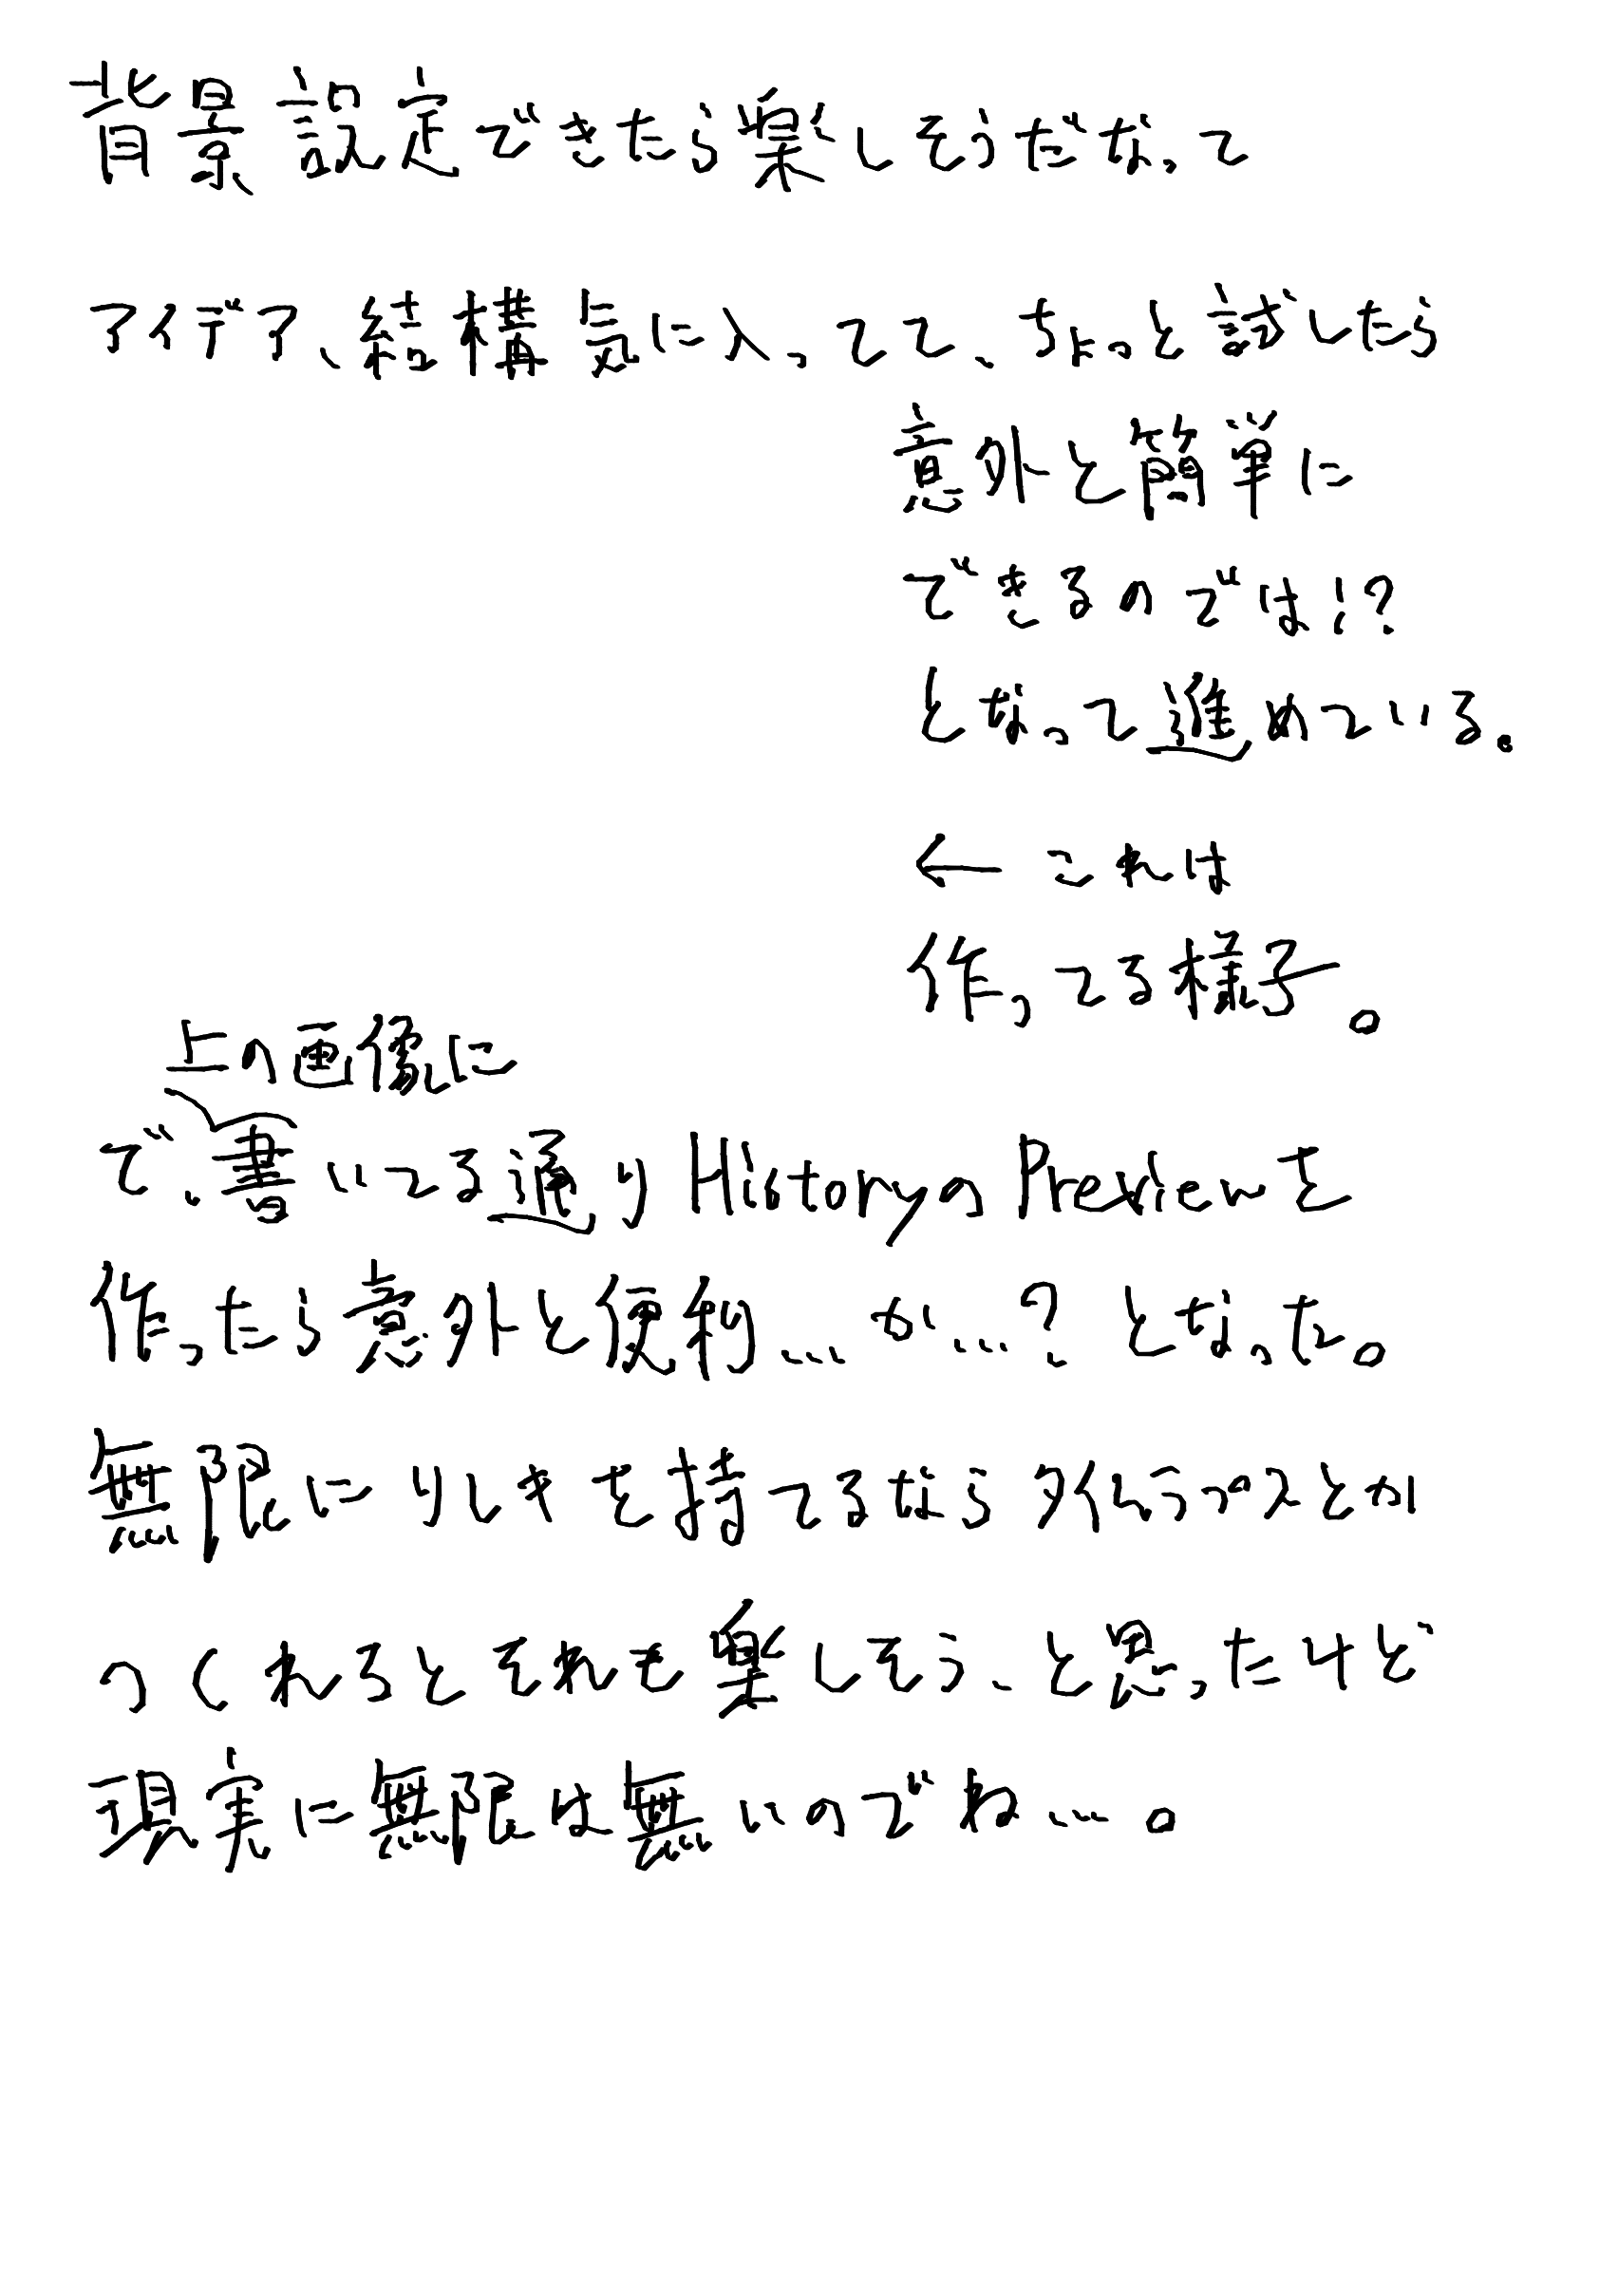 背景設定できたら楽しそうだなって
アイデア、結構気に入ってて、ちょっと試したら
意外と簡単に
できるのでは!?
となって進めている。
← これは
作ってる様子。
上の画像に
で、書いてる通りHistoryのPreviewを
作ったら意外と便利...か...?となった。
無限にりれきを持てるならタイムラプスとか
つくれるとそれも楽しそう、と思ったけど
現実に無限は無いのでね...。